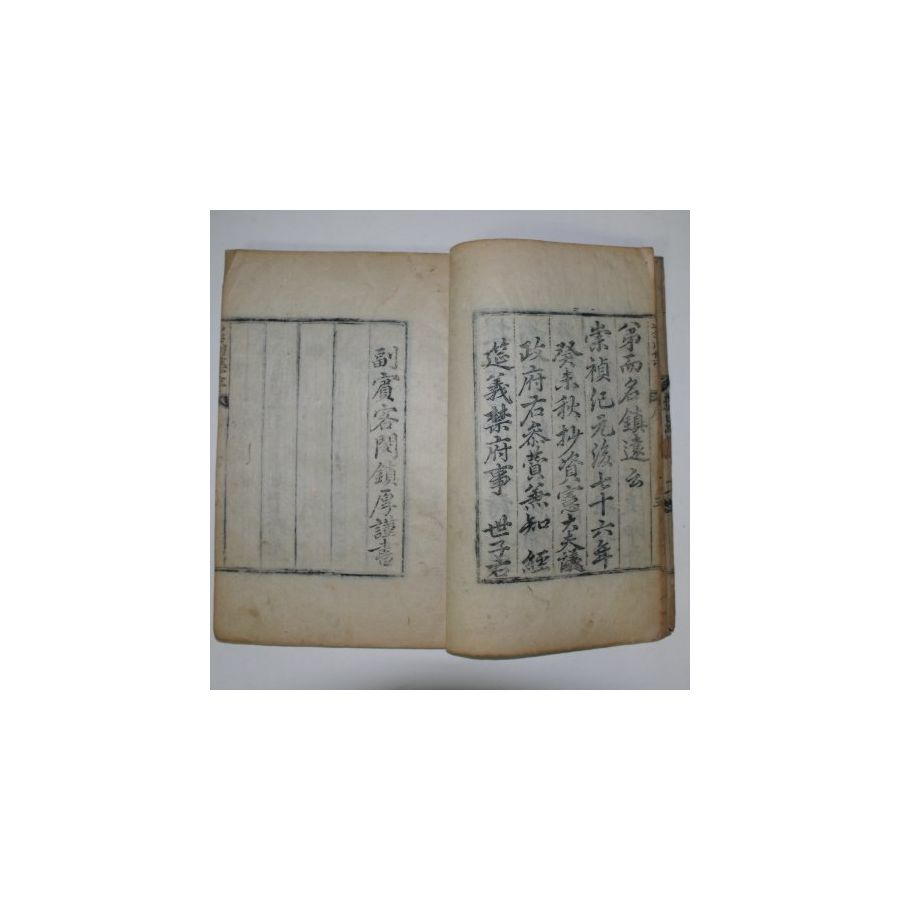 弟而名鎮遠云
崇禎紀元後七十六年
癸未秋抄資憲大夫議
政府右參贊兼知 經
筵義禁府事 世子右
副賓客閔鎮厚謹書